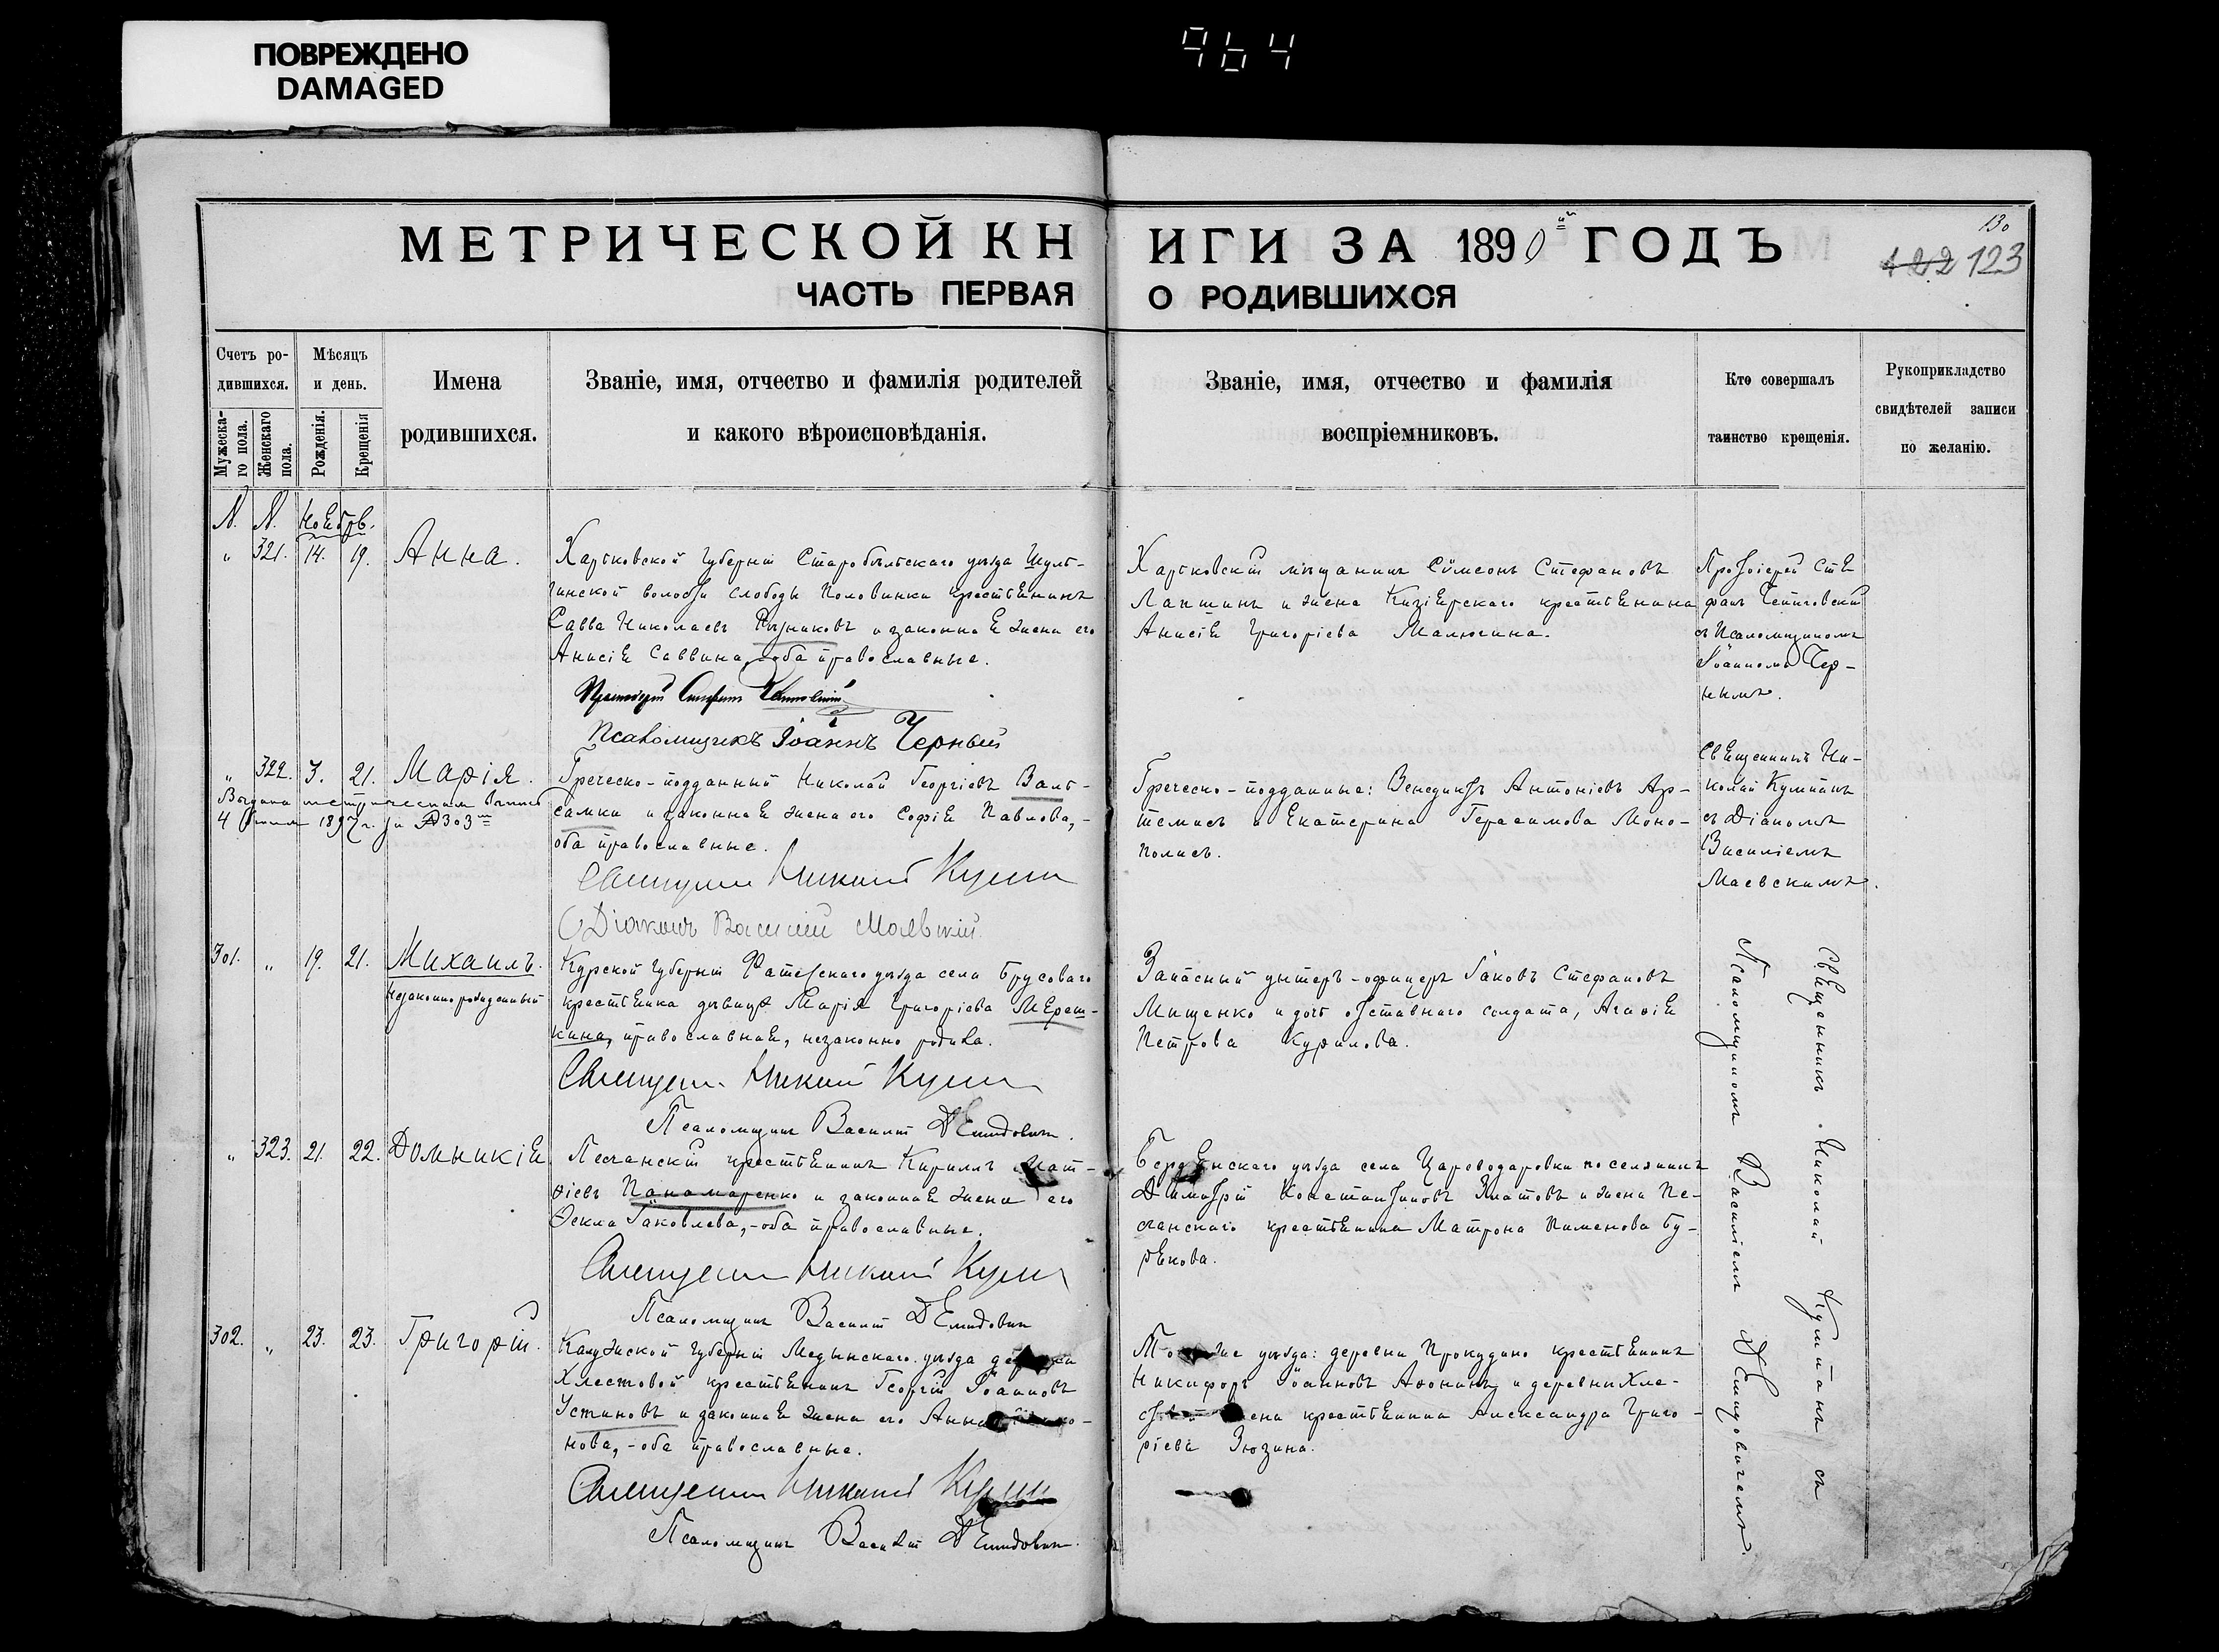 ПОВРЕЖДЕНО
DAMAGED
964
МЕТРИЧЕСКОЙ КНИГИ ЗА 1890й ГОДЪ
130
122 123
ЧАСТЬ ПЕРВАЯ О РОДИВШИХСЯ
Счетъ ро-
дившихся.
Мужеска-
го пола.
Женскаго
пола.
Мѣсяцъ
и день.
Рожденія.
Крещенія
Имена
родившихся.
Званіе, имя, отчество и фамилія родителей
и какого вѣроисповѣданія.
Званіе, имя, отчество и фамилія
воспріемниковъ.
Кто совершалъ
таинство крещенія.
Рукоприкладство
свидѣтелей записи
по желанію.
N. N. Ноябрь.
" 321. 14. 19. Анна.
Харьковской губерніи Старобѣльскаго уѣзда Шуль-
гинской волости слободы Половинки крестьянинъ
Савва Николаевъ и законная жена его
Анисія Саввина, оба православные.
Протоіерей Стефанъ
Псаломщикъ Іоаннъ Черный
Харьковскій мѣщанинъ Сѵмеонъ Стефановъ
Лапшинъ и жена крестьянина
Анисія Григоріева Малюгина.
Протоіерей Сте
фанъ
съ Псаломщикомъ
Іоанномъ Чер-
нымъ.
" 322. 3. 21. Марія.
Выдана метрическая выпись
4 1897 г. за №303
Греческо-подданный Николай Георгіевъ Валь-
самки и законная жена его Софія Павлова,-
оба православные.
Священникъ Николай
Діаконъ Василій Маевскій
Греческо-подданные: Венедиктъ Антоніевъ Ар-
темисъ и Екатерина Герасимова Моно-
полисъ.
Священникъ Ни-
колай Кумпанъ
съ Діакономъ
Василіемъ
Маевскимъ.
301. " 19. 21. Михаилъ.
незаконнорожденный
Курской губерніи Фатежскаго уѣзда села Брусоваго
крестьянка дѣвица Марія Григоріева Мереш-
кина, православная, незаконно родила.
Священникъ Николай
Псаломщикъ Василій Демидовичъ.
Запасный унтеръ-офицеръ Іаковъ Стефановъ
Мищенко и дочь отставнаго солдата, Агафія
Петрова Курилова.
" 323. 21. 22. Домникія
Песчанскій крестьянинъ Кириллъ Мат-
ѳіевъ Панамаренко и законная жена его
Ѳекла Іаковлева,-оба православные.
Священникъ Николай
Псаломщикъ Василій Демидовичъ
Бердянскаго уѣзда села Цареводаровки поселянинъ
Димитрій Константиновъ Златовъ и жена Пе-
счанскаго крестьянина Матрона Пименова Бу-
рякова.
302. " 23. 23. Григорій.
Калужской губерніи Медынскаго уѣзда деревни
Хлестовой крестьянинъ Георгій Іоанновъ
Устиновъ и законная жена его Анна
нова,-оба православные.
Священникъ Николай
Псаломщикъ Василій Демидовичъ.
уѣзда: деревни Прокудино крестьянинъ
Никифоръ Іоанновъ Аѳонинъ и деревни Хле-
жена крестьянина Александра Григо-
ріева Зюзина.
Священникъ Николай Кумпанъ съ
Псаломщикомъ Василіемъ Демидовичемъ.